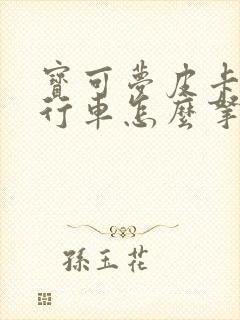 寶可夢皮卡
行車怎麼拏
孫玉花